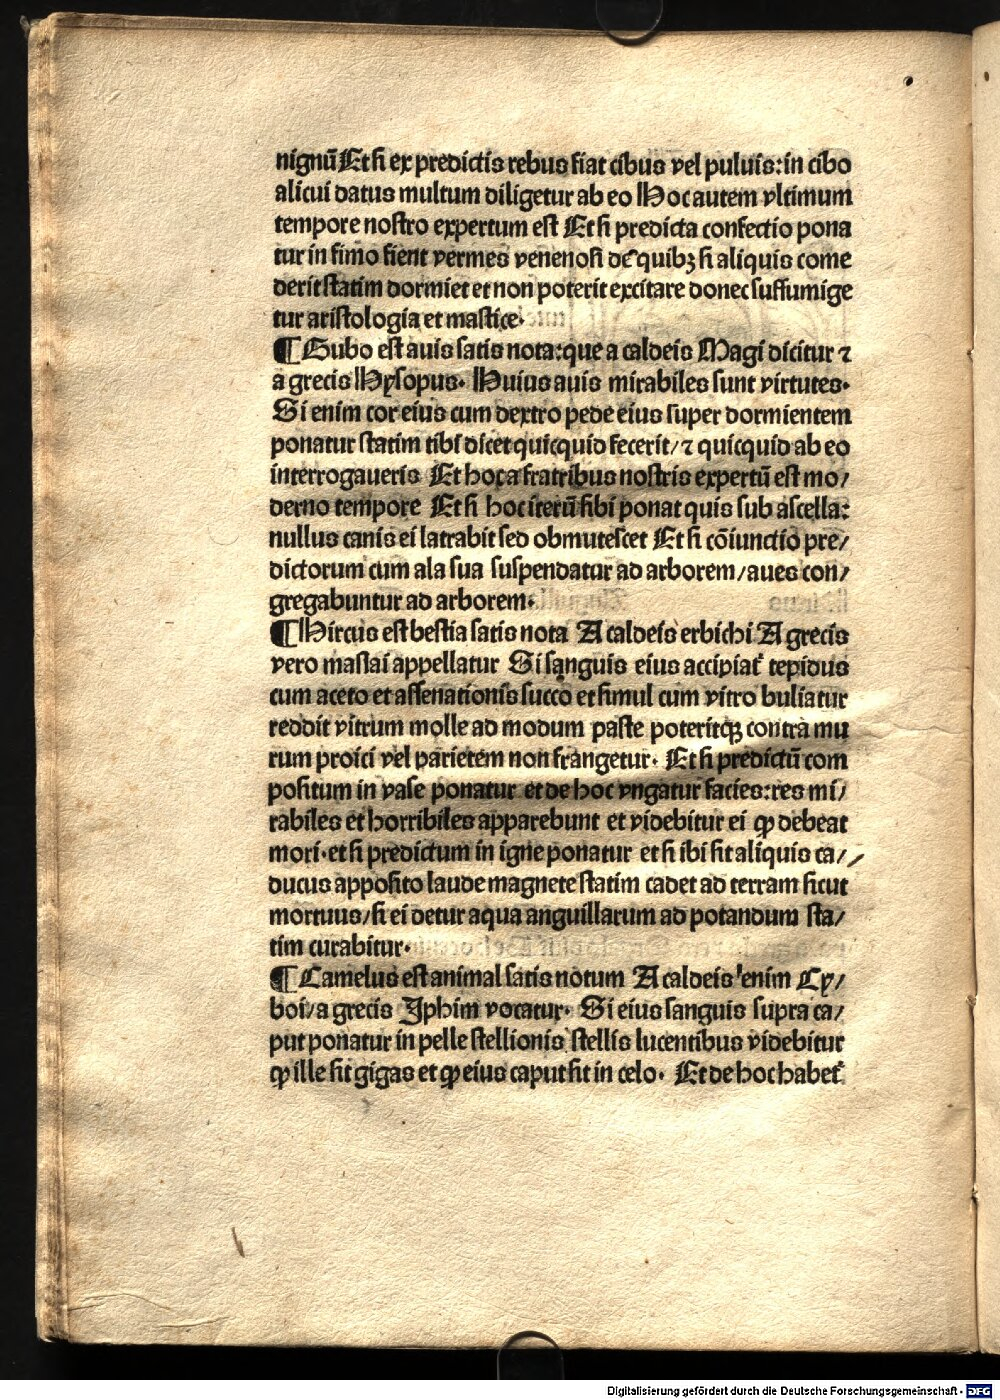 nignũ Et si ex predictis rebus fiat cibus vel puluis: in cibo
alicui datus multum diligetur ab eo Hoc autem vltimum
tempore nostro expertum est Et si predicta confectio pona
tur in fimo fient vermes venenosi de quibꝫ si aliquis come
derit statim dormiet et non poterit excitare donec suffumige
tur aristologia et mastice.
¶ Bubo est auis satis nota: que a caldeis Magi dicitur ⁊
a grecis Hysopus. Huius auis mirabiles sunt virtutes.
Si enim cor eius cum dextro pede eius super dormientem
ponatur statim tibi dicet quicquid fecerit/ ⁊ quicquid ab eo
interrogaueris Et hoc a fratribus nostris expertũ est mo/
derno tempore Et si hoc iterũ sibi ponat quis sub ascella:
nullus canis ei latrabit sed obmutescet Et si cõiunctio pre/
dictorum cum ala sua suspendatur ad arborem/ aues con/
gregabuntur ad arborem.
¶ Hircus est bestia satis nota A caldeis erbichi A grecis
vero mastai appellatur Si sanguis eius accipiat᷑ tepidus
cum aceto et assenationis succo et simul cum vitro buliatur
reddit vitrum molle ad modum paste poteritqꝫ contra mu
rum proici vel parietem non frangetur. Et si predictũ com
positum in vase ponatur et de hoc vngatur facies: res mi/
rabiles et horribiles apparebunt et videbitur ei ꝙ debeat
mori. et si predictum in igne ponatur et si ibi sit aliquis ca/
ducus apposito laude magnete statim cadet ad terram sicut
mortuus/ si ei detur aqua anguillarum ad potandum sta/
tim curabitur.
¶ Camelus est animal satis notum A caldeis enim Cy/
boi/ a grecis Iphim vocatur. Si eius sanguis supra ca/
put ponatur in pelle stellionis stellis lucentibus videbitur
ꝙ ille sit gigas et ꝙ eius caput sit in celo. Et de hoc habet᷑
Digitalisierung gefördert durch die Deutsche Forschungsgemeinschaft - DFG